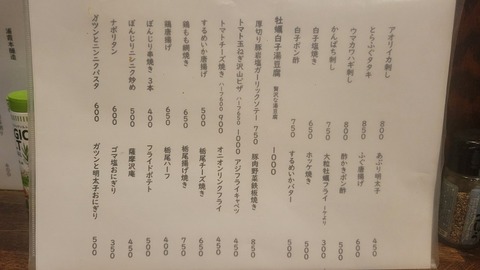 アオリイカ刺し 800
とらふぐタタキ 850
ウマカワハギ刺し 800
かんぱち刺し 750
白子塩焼き 650
白子ポン酢 750
牡蠣白子湯豆腐 贅沢な湯豆腐 1000
厚切り豚岩塩ガーリックソテー 750
トマト玉ねぎ沢山ピザ ハーフ650 1000
トマトチーズ焼き ハーフ600 900
するめいか唐揚げ 500
鶏もも網焼き 650
鶏唐揚げ 650
ぼんじり串焼き 3本 400
ぼんじりニンニク炒め 500
ナポリタン 600
ガツンとニンニクパスタ 600
あぶり明太子 450
ふぐ唐揚げ 600
酢かきポン酢 500
大粒牡蠣フライ 一ケより 300
ホッケ焼き 500
するめいかバター 500
豚肉野菜鉄板焼き 850
アジフライキャベツ 450
オニオンリングフライ 450
栃尾チーズ焼き 650
栃尾揚げ焼き 750
栃尾ハーフ 400
フライドポテト 500
薩摩沢庵 450
ゴマ塩おにぎり 350
ガツンと明太子おにぎり 500